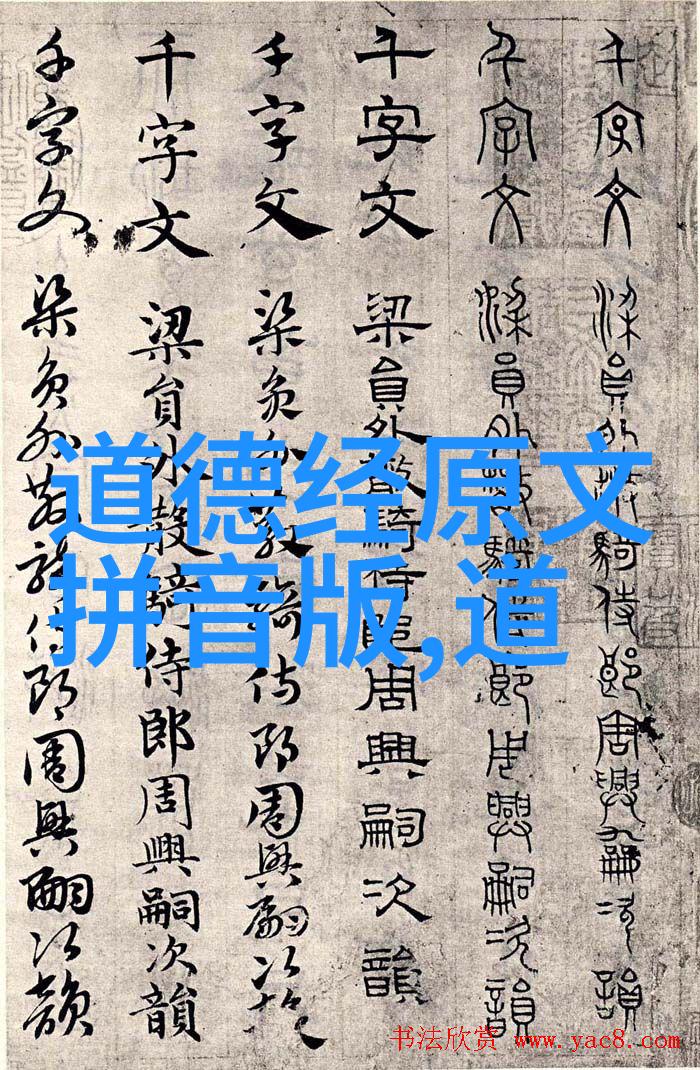 千字文 梁員外散騎侍郎周興嗣次韻
千字文 梁員外散騎侍郎周興嗣次韻
千字文 梁員外散騎侍郎周興嗣次韻
千字文 梁員外散騎侍郎周興嗣次韻
千字文 梁員外散騎侍郎周興嗣次韻
千字文 梁員外散騎侍郎周興嗣次韻
道德经原文
拼音版,道
书法欣赏 www.yac8.com